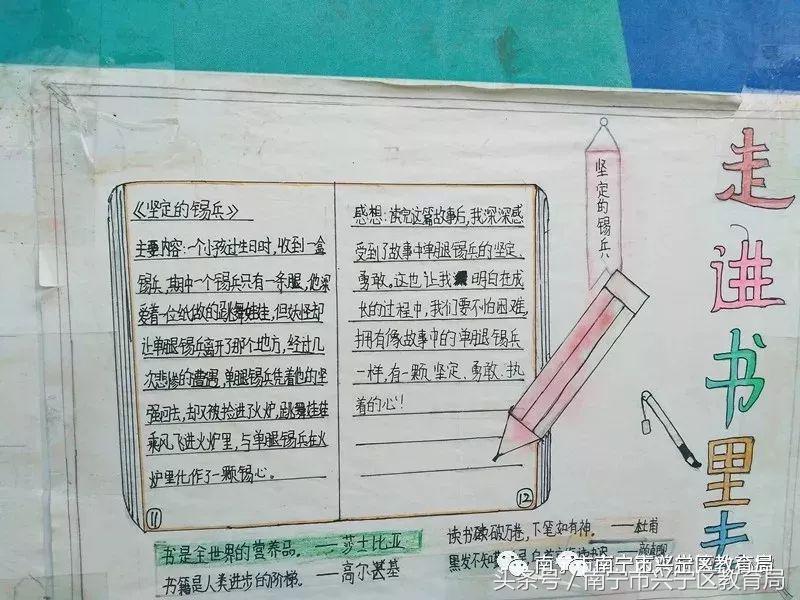 走进书里去
坚定的锡兵
《坚定的锡兵》
主要内容:一个小孩过生日时,收到一盒
锡兵,其中一个锡兵只有一条腿,他深
爱着一位纸做的跳舞娃娃,但妖怪却
让单腿锡兵离开了那个地方,经过几
次悲惨的遭遇,单腿锡兵凭着他的坚
强回去,却又被捡进了火炉,跳舞娃娃
乘风飞进火炉里,与单腿锡兵在火
炉里化作了一颗锡心。
11
感想:读完这篇故事后,我深深感
受到了故事中单腿锡兵的坚定、
勇敢。这也让我明白在成
长的过程中,我们要不怕困难,
拥有像故事中的单腿锡兵
一样,有一颗坚定、勇敢、执
着的心!
12
书是全世界的营养品。——莎士比亚
书籍是人类进步的阶梯。——高尔基
读书破万卷,下笔如有神。——杜甫
黑发不知
南宁市兴宁区教育局
头条号/南宁市兴宁区教育局